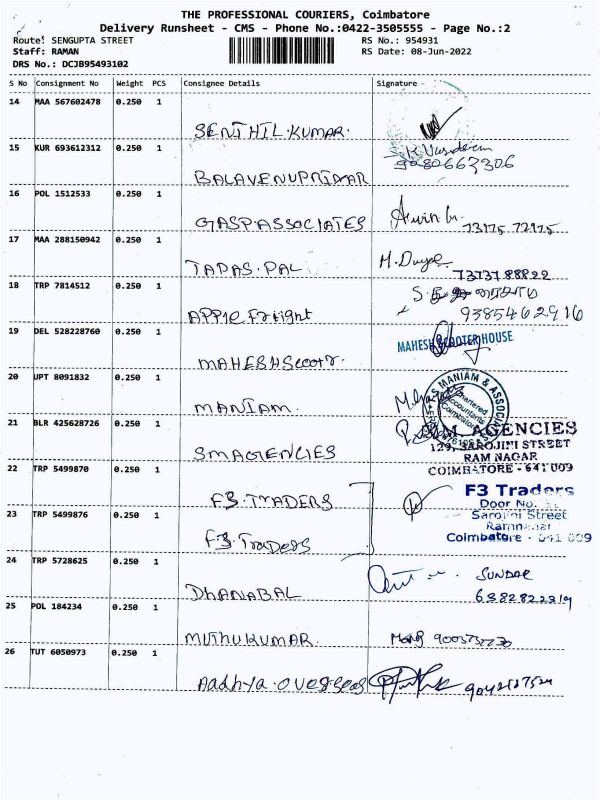 THE PROFESSIONAL COURIERS, Coimbatore
Delivery Runsheet - CMS - Phone No.:0422-3505555 - Page No.:2
Route: SENGUPTA STREET RS No.: 954931
Staff: RAMAN RS Date: 08-Jun-2022
DRS No.: DCJB95493102
S No Consignment No Weight PCS Consignee Details Signature -
14 MAA 567602478 0.250 1
SENTHIL.KUMAR.
15 KUR 693612312 0.250 1
9080663306
BALAVENUPRIMAR
16 POL 1512533 0.250 1
GASP.ASSOCIATES
73175 72175
17 MAA 288150942 0.250 1
TADAS.PAL
73737 88822
18 TRP 7814512 0.250 1
9385462916
APPle Freight
19 DEL 528228760 0.250 1
MAHESH SCOOTER HOUSE
MAHESH Scootr.
20 UPT 8091832 0.250 1
S MANIAM & ASSOCI
Chartered
Accountants
Coimbatore
MANIAM.
21 BLR 425628726 0.250 1
AGENCIES
129, SAROJINI STREET
RAM NAGAR
COIMBATORE - 641 009
SMAGENCIES
22 TRP 5499870 0.250 1
F3.TRADERS
F3 Traders
Door No.
23 TRP 5499876 0.250 1
Sarojini Street
Ramnagar
Coimbatore - 641 009
F3.Traders
24 TRP 5728625 0.250 1
SUNDAR
DHANABAL
6382822219
25 POL 184234 0.250 1
MUTHUKUMAR.
26 TUT 6050973 0.250 1
Aadhya.overseas